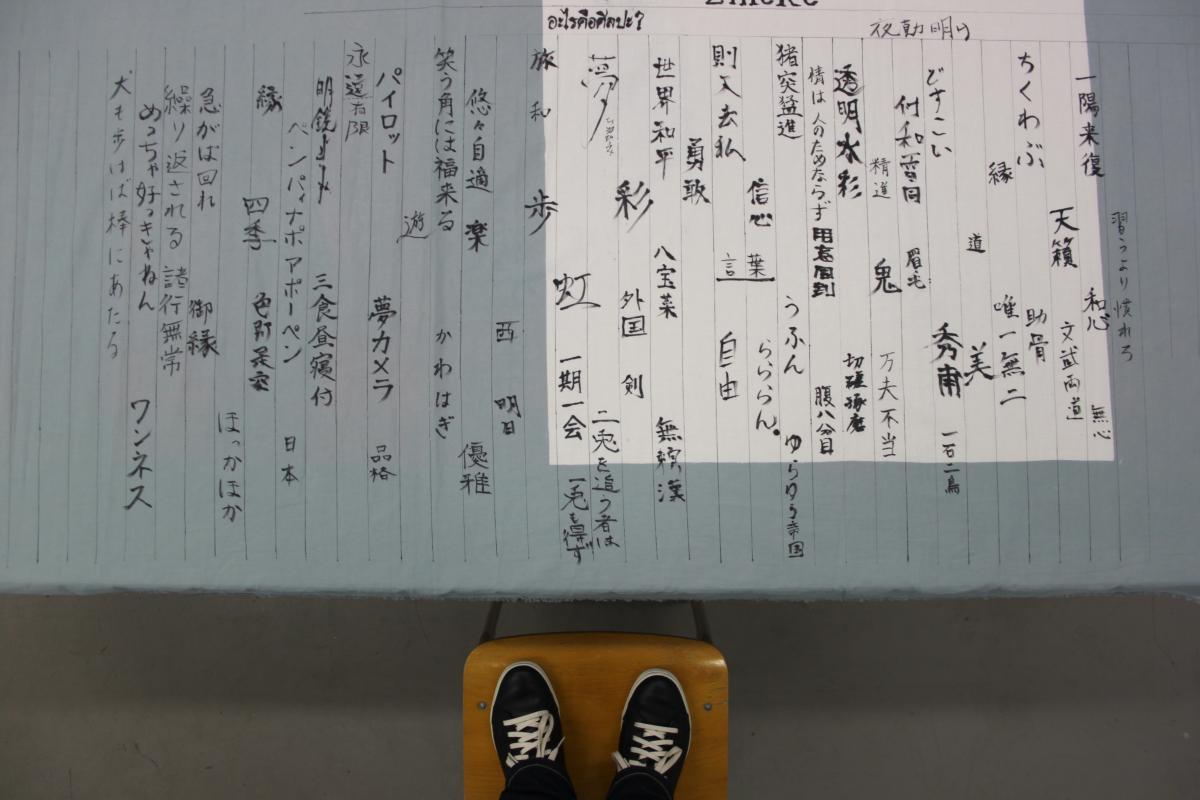 อะไรคือศิลปะ?
習うより慣れろ
一陽来復 和心 無心
天籟 文武両道
ちくわぶ 助骨
縁 唯一無二
道 美
どすこい 秀甫 一石二鳥
付和雷同 眉毛
精進 鬼 万夫不当
透明水彩 切磋琢磨
情は人のためならず 用意周到 腹八分目
猪突猛進 うふん ゆらゆら帝国
信心 言葉 らららん。
則天去私 自由
勇敢
世界和平 八宝菜 無頼漢
彩 外国 剣
夢 二兎を追う者は
虹 一期一会 一兎も得ず
旅 和 歩
西 明日
悠々自適 楽 優雅
笑う角には福来る かわはぎ
遊
パイロット 夢カメラ 品格
永遠有限
三食昼寝付
ペンパイナポアポーペン 日本
縁 四季
ほっかほか
急がば回れ 御縁
繰り返される諸行無常
めっちゃ好っきゃねん ワンネス
犬も歩けば棒にあたる